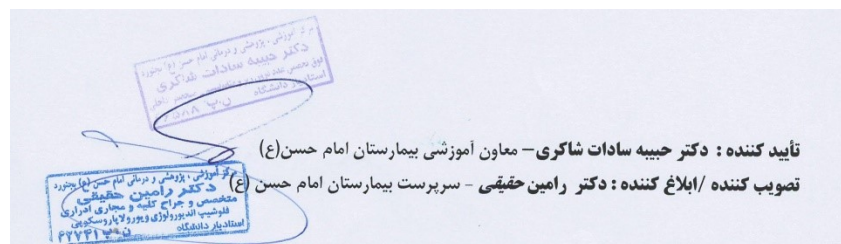 مرکز آموزشی، پژوهشی و درمانی امام حسن (ع) بجنورد
دکتر حبیبه سادات شاکری
فوق تخصص
استادیار دانشگاه
تأیید کننده : دکتر حبیبه سادات شاکری– معاون آموزشی بیمارستان امام حسن(ع)
تصویب کننده /ابلاغ کننده : دکتر رامین حقیقی - سرپرست بیمارستان امام حسن (ع)
مرکز آموزشی، پژوهشی و درمانی امام حسن (ع) بجنورد
دکتر رامین حقیقی
متخصص و جراح کلیه و مجاری ادراری
فلوشیپ اندیورولوژی و یورولاپاروسکوپی
استادیار دانشگاه
ن پ ۴۲۷۴۱